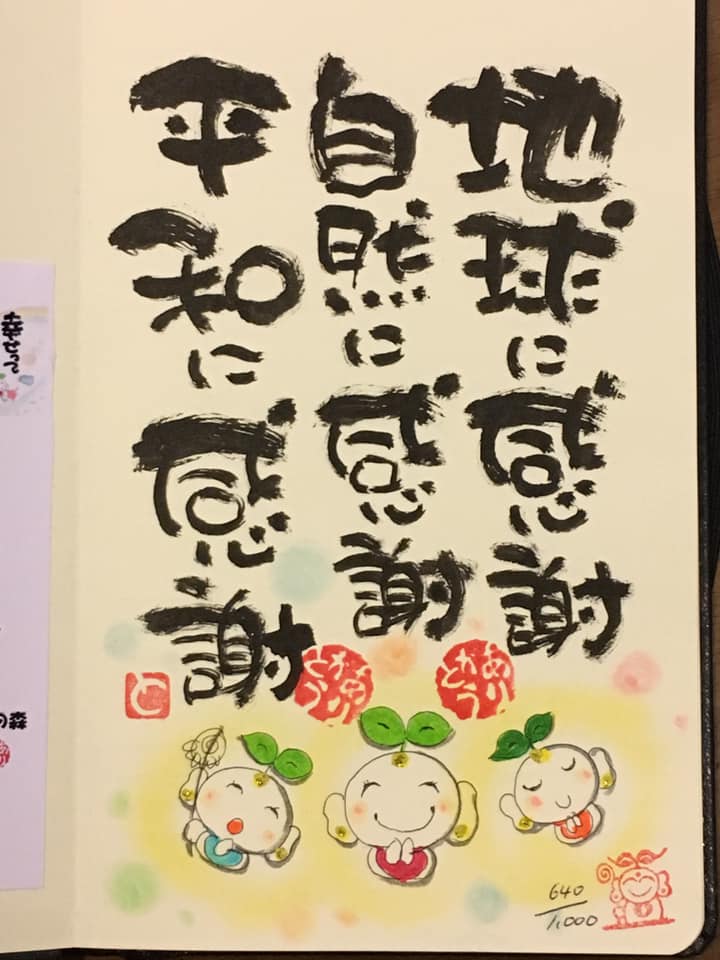 地球に感謝
自然に感謝
平和に感謝
ありがとう
640
1,000
幸せって
の森